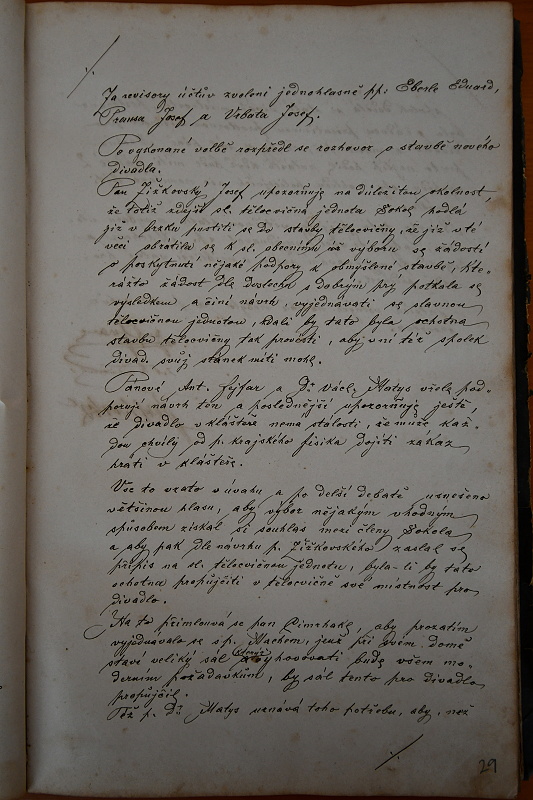 Za revisory účtův zvoleni jednohlasně pp: Eberle Eduard,
Prausa Josef a Vrbata Josef.
Po vykonané volbě rozpředl se rozhovor o stavbě nového
divadla.
Pan Žižkovský Josef upozorňuje na důležitou okolnost,
že totiž zdejší sl. tělocvičná jednota Sokol hodlá
již v brzku pustiti se do stavby tělocvičny, že již v té
věci obrátila se k sl. obecnímu výboru se žádostí
o poskytnutí nějaké podpory k obmýšlené stavbě, kte-
rážto žádost dle doslechu s dobrým prý potkala se
výsledkem a činí návrh, vyjednávati se slavnou
tělocvičnou jednotou, zdali by tato byla ochotna
stavbu tělocvičny tak provésti, aby v ní též spolek
divad. svůj stánek míti mohl.
Pánové Ant. Fyfar a Dr Václ. Matys vřele pod-
porují návrh ten a poslednější upozorňuje ještě,
že divadlo v klášteře nemá stálosti, že může kaž-
dou chvíli od p. krajského fisika dojíti zákaz
hráti v klášteře.
Vše to vzato v úvahu a po delší debatě usneseno
většinou hlasů, aby výbor nějakým vhodným
způsobem získal si souhlas mezi členy Sokola
a aby pak dle návrhu p. Žižkovského zaslal se
přípis na sl. tělocvičnou jednotu, byla-li by tato
ochotna propůjčiti v tělocvičně své místnost pro
divadlo.
Na to přimlouvá se pan, aby prozatím
vyjednávalo se s p. Machem, jenž při svém domě
staví veliký sál, který vyhovovati bude všem mo-
derním požadavkům, by sál tento pro divadlo
propůjčil.
Též p. Dr. Matys uznává toho potřebu, aby, než
29